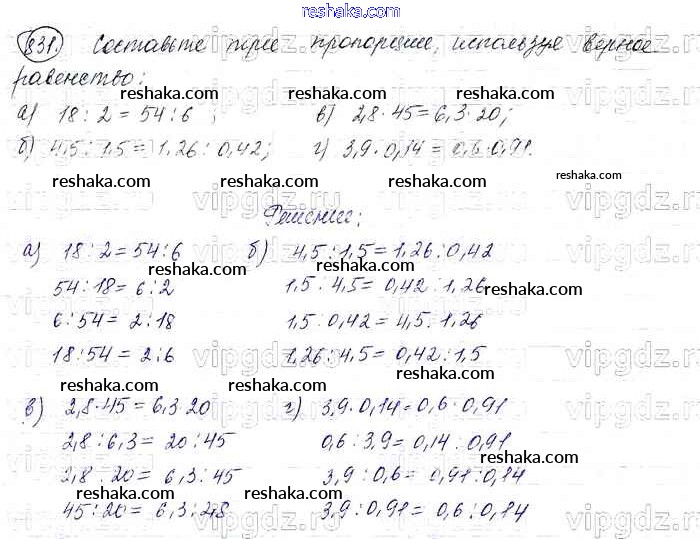 reshaka.com
831. Составьте три пропорции, используя верное
равенство:
а) 18 : 2 = 54 : 6 ; в) 2,8 · 45 = 6,3 · 20;
reshaka.com reshaka.com
б) 4,5 : 1,5 = 1,26 : 0,42; г) 3,9 · 0,14 = 0,6 · 0,91.
reshaka.com reshaka.com reshaka.com
Решение:
а) 18 : 2 = 54 : 6 б) 4,5 : 1,5 = 1,26 : 0,42
reshaka.com reshaka.com
54 : 18 = 6 : 2 1,5 : 4,5 = 0,42 : 1,26
reshaka.com reshaka.com
6 : 54 = 2 : 18 1,5 : 0,42 = 4,5 : 1,26
reshaka.com reshaka.com
18 : 54 = 2 : 6 1,26 : 4,5 = 0,42 : 1,5
reshaka.com reshaka.com
в) 2,8 · 45 = 6,3 · 20 г) 3,9 · 0,14 = 0,6 · 0,91
reshaka.com reshaka.com
2,8 : 6,3 = 20 : 45 0,6 : 3,9 = 0,14 : 0,91
reshaka.com reshaka.com
2,8 : 20 = 6,3 : 45 3,9 : 0,6 = 0,91 : 0,14
reshaka.com reshaka.com
45 : 20 = 6,3 : 28 3,9 : 0,91 = 0,6 : 0,14
reshaka.com